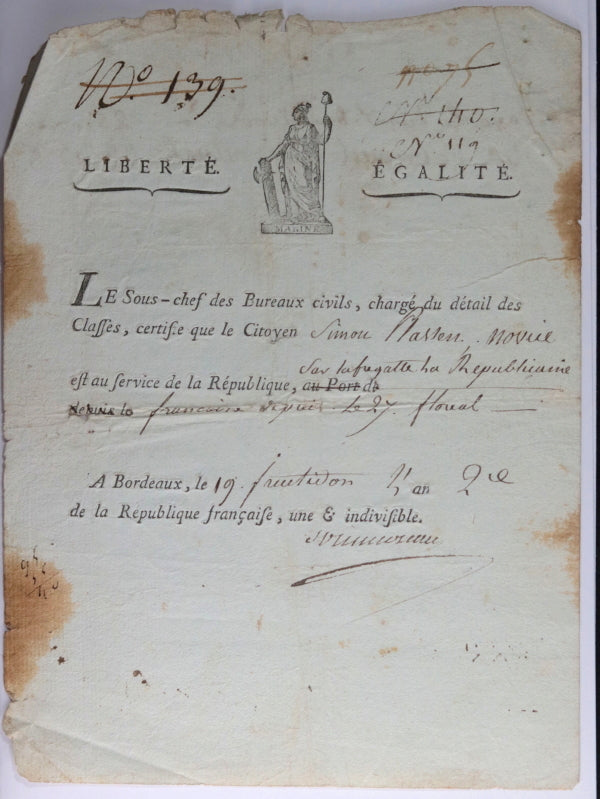 N.º 139.
nº 75
Nº 140.
Nº 119
LIBERTÉ.
ÉGALITÉ.
MARINE
LE Sous-chef des Bureaux civils, chargé du détail des
Claſſes, certifie que le Citoyen Simon novice
Sur la fregatte La Republicaine
eſt au ſervice de la République, au Port de
depuis le francaise depuis Le 27 floreal
A Bordeaux, le 19 fructidor l'an 2
de la République françaiſe, une & indiviſible.